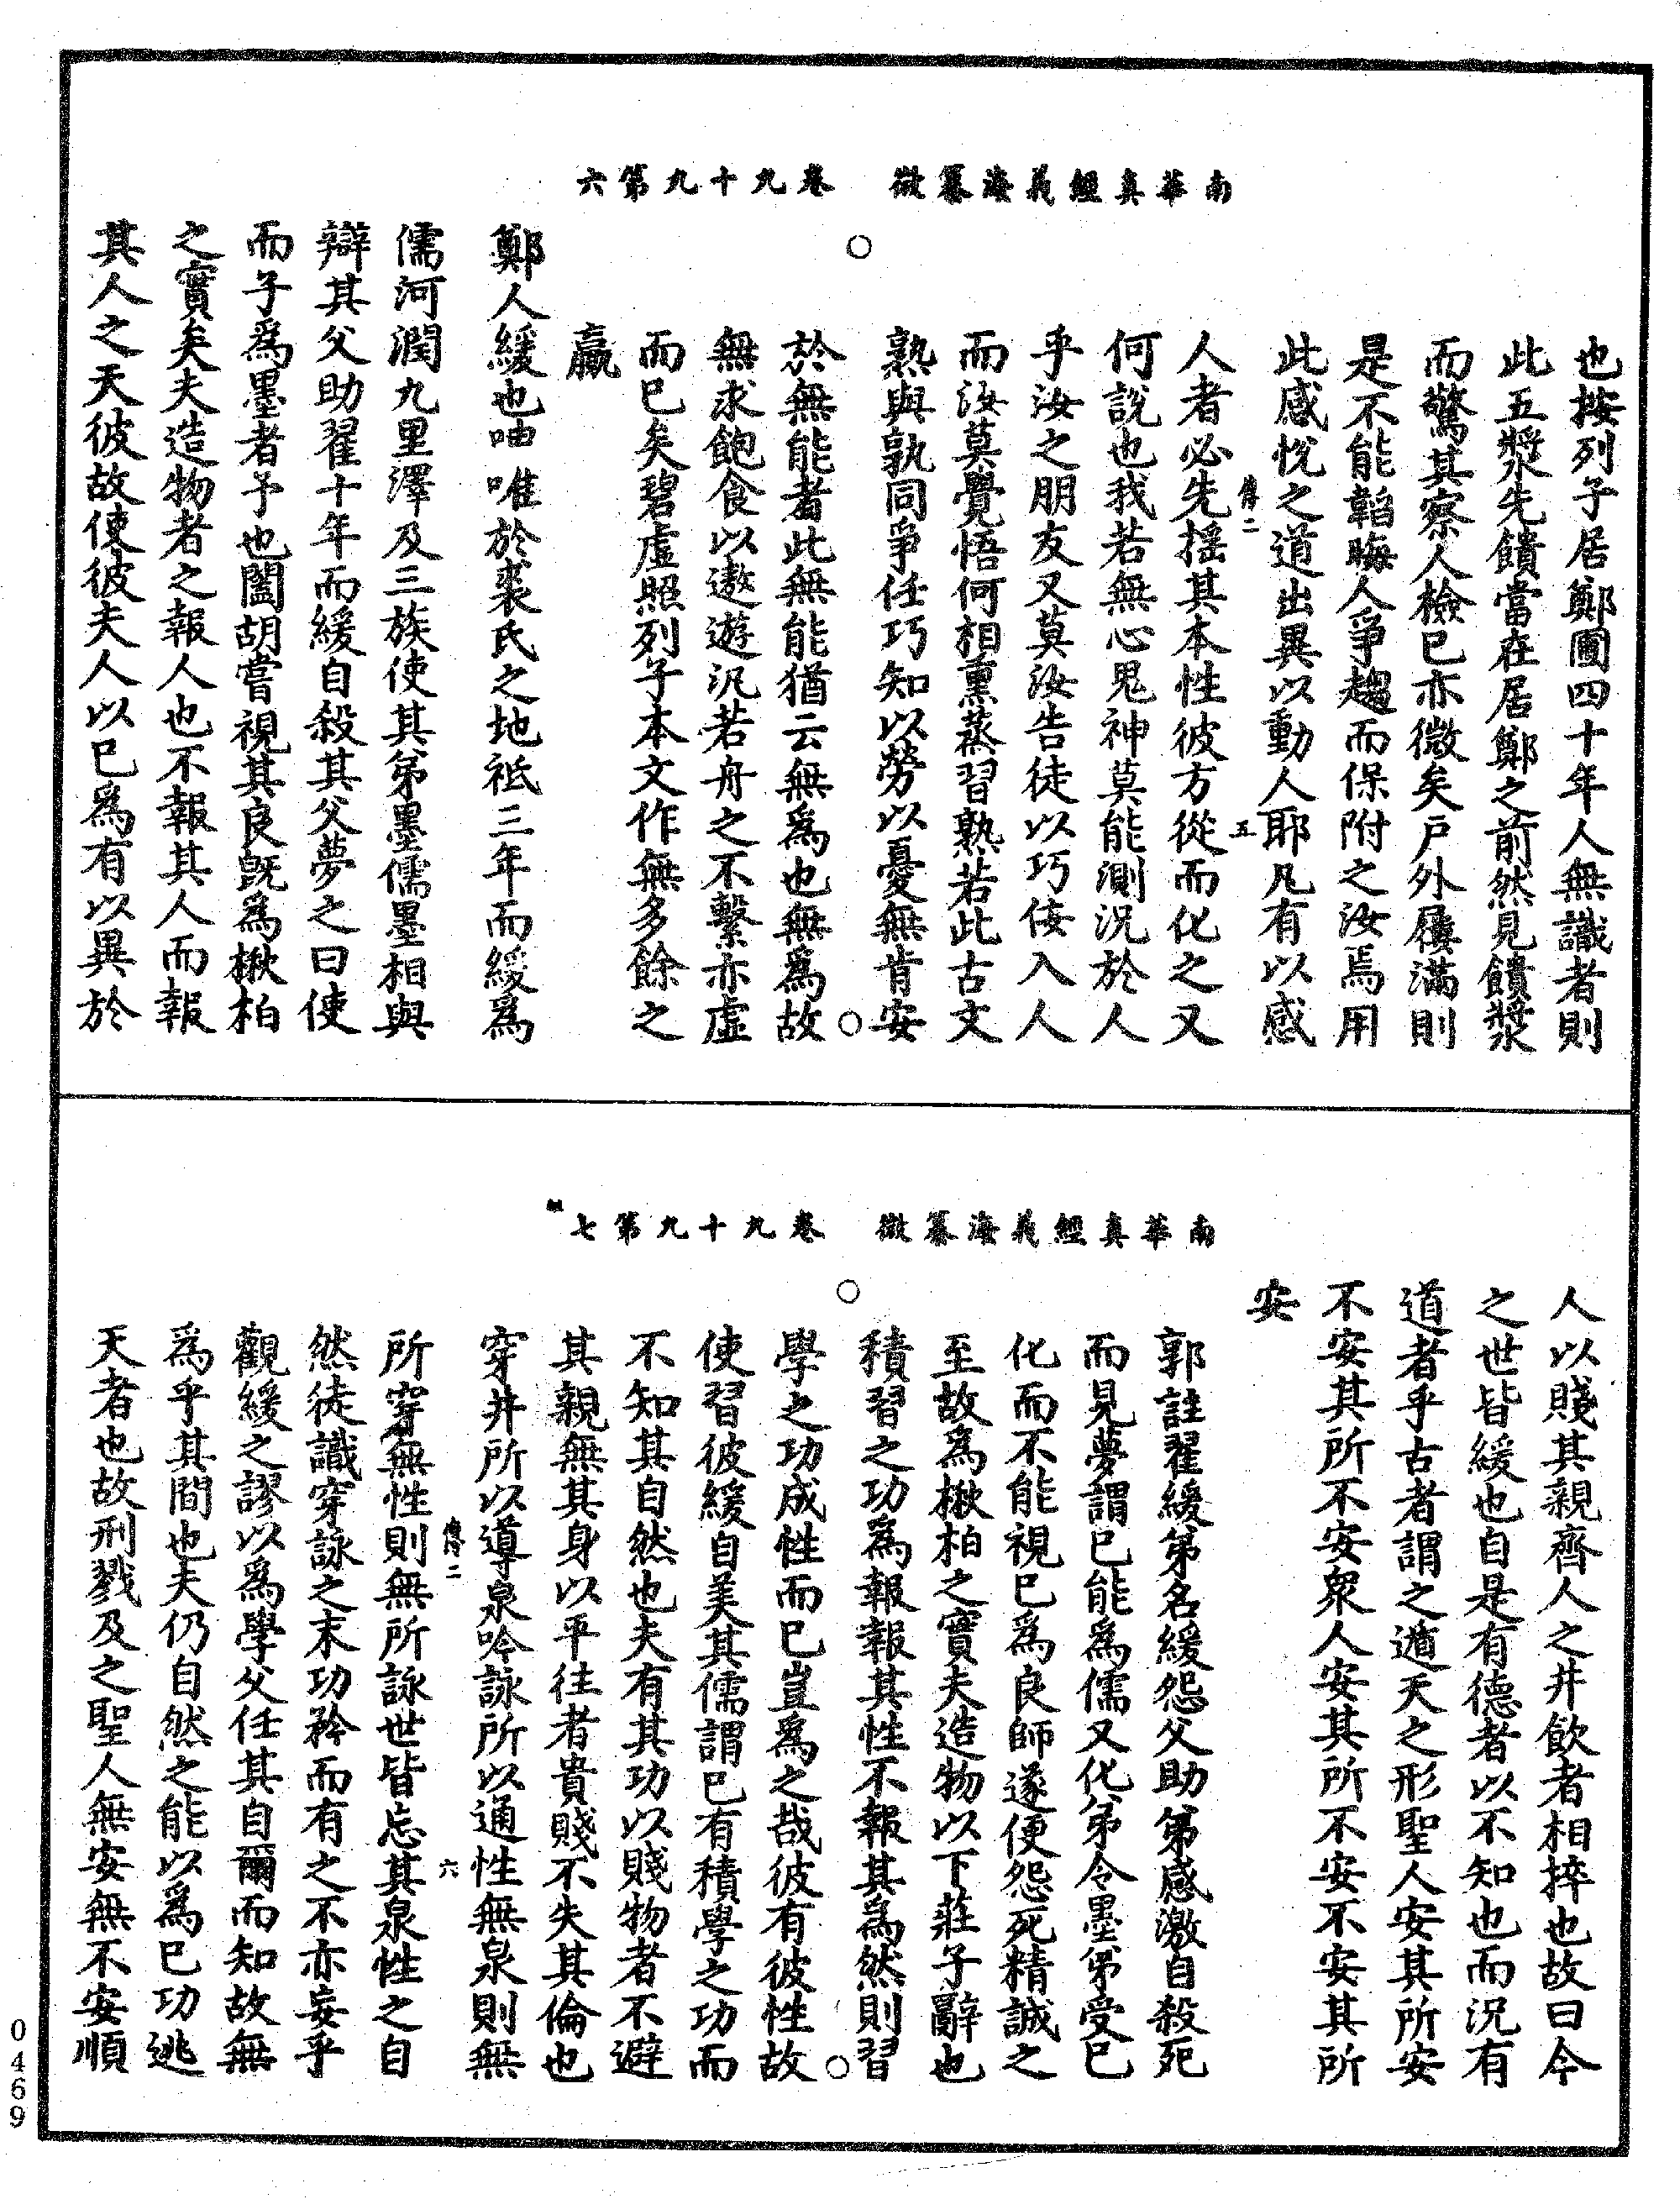 南華真經義海纂微　卷九十九第六
也按列子居鄭圃四十年人無識者則
此五漿先饋當在居鄭之前然見饋漿
而驚其察人檢已亦微矣户外屨滿則
是不能韜晦人爭趨而保附之汝焉用
此感恱之道出異以動人耶凡有以感
傅二　五
人者必先揺其本性彼方從而化之又
何說也我若無心鬼神莫能測况於人
乎汝之朋友又莫汝告徒以巧佞入人
而汝莫覺悟何相熏蒸習熟若此古文
熟與孰同爭任巧知以勞以憂無肯安
於無能者此無能猶云無爲也無爲故
無求飽食以遨遊汎若舟之不繫亦虛
而已矣碧虛照列子本文作無多餘之
贏
鄭人緩也呻唯於裘氏之地祗三年而緩爲
儒河潤九里澤及三族使其弟墨儒墨相與
辯其父助翟十年而緩自殺其父夢之曰使
而子爲墨者予也闔胡嘗視其良既爲楸柏
之實矣夫造物者之報人也不報其人而報
其人之天彼故使彼夫人以已爲有以異於
南華真經義海纂微　卷九十九第七
人以賤其親齊人之井飲者相捽也故曰今
之世皆緩也自是有德者以不知也而况有
道者乎古者謂之遁天之形聖人安其所安
不安其所不安衆人安其所不安不安其所
安
郭註翟緩弟名緩怨父助弟感激自殺死
而見夢謂已能爲儒又化弟令墨弟受已
化而不能視已爲良師遂便怨死精誠之
至故爲楸柏之實夫造物以下莊子辭也
積習之功爲報報其性不報其爲然則習
學之功成性而已豈爲之哉彼有彼性故
使習彼緩自美其儒謂已有積學之功而
不知其自然也夫有其功以賤物者不避
其親無其身以平往者貴賤不失其倫也
穿井所以導泉吟詠所以通性無泉則無
傅二　六
所穿無性則無所詠世皆忘其泉性之自
然徒識穿詠之末功矜而有之不亦妄乎
觀緩之謬以爲學父任其自爾而知故無
爲乎其間也夫仍自然之能以爲已功逃
天者也故刑戮及之聖人無安無不安順
0469